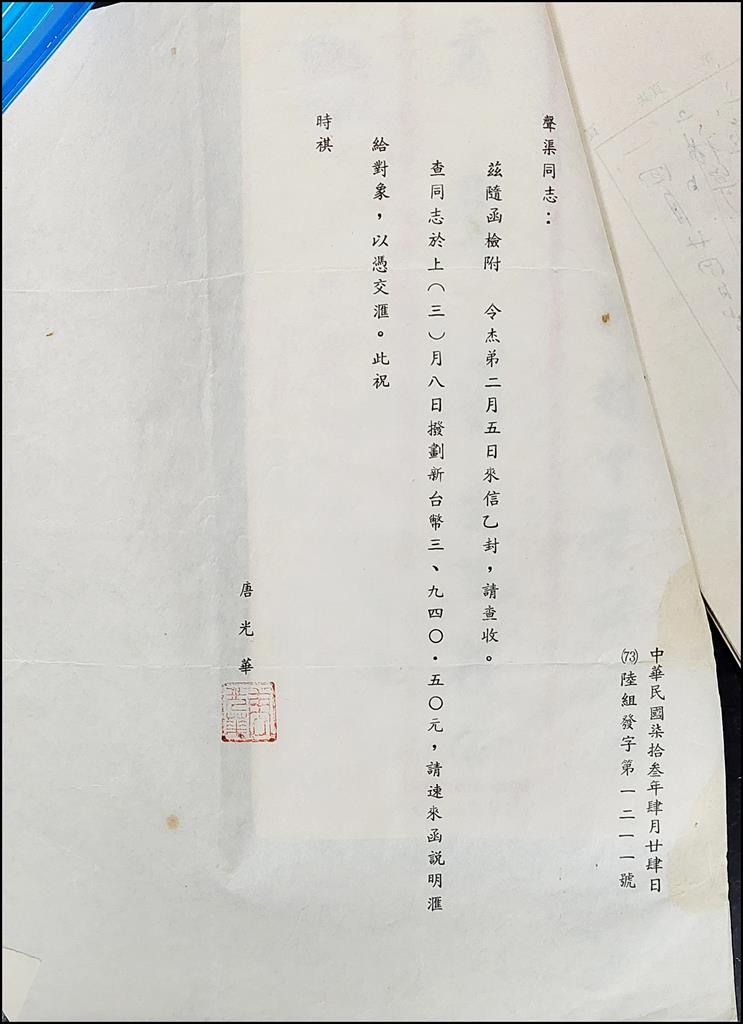 中華民國柒拾叁年肆月廿肆日
(73)陸組發字第一二一一號
聲渠同志：
茲隨函檢附　令杰弟二月五日來信乙封，請查收。
查同志於上（三）月八日撥劃新台幣三、九四〇．五〇元，請速來函說明滙
給對象，以憑交滙。此祝
時祺
唐光華